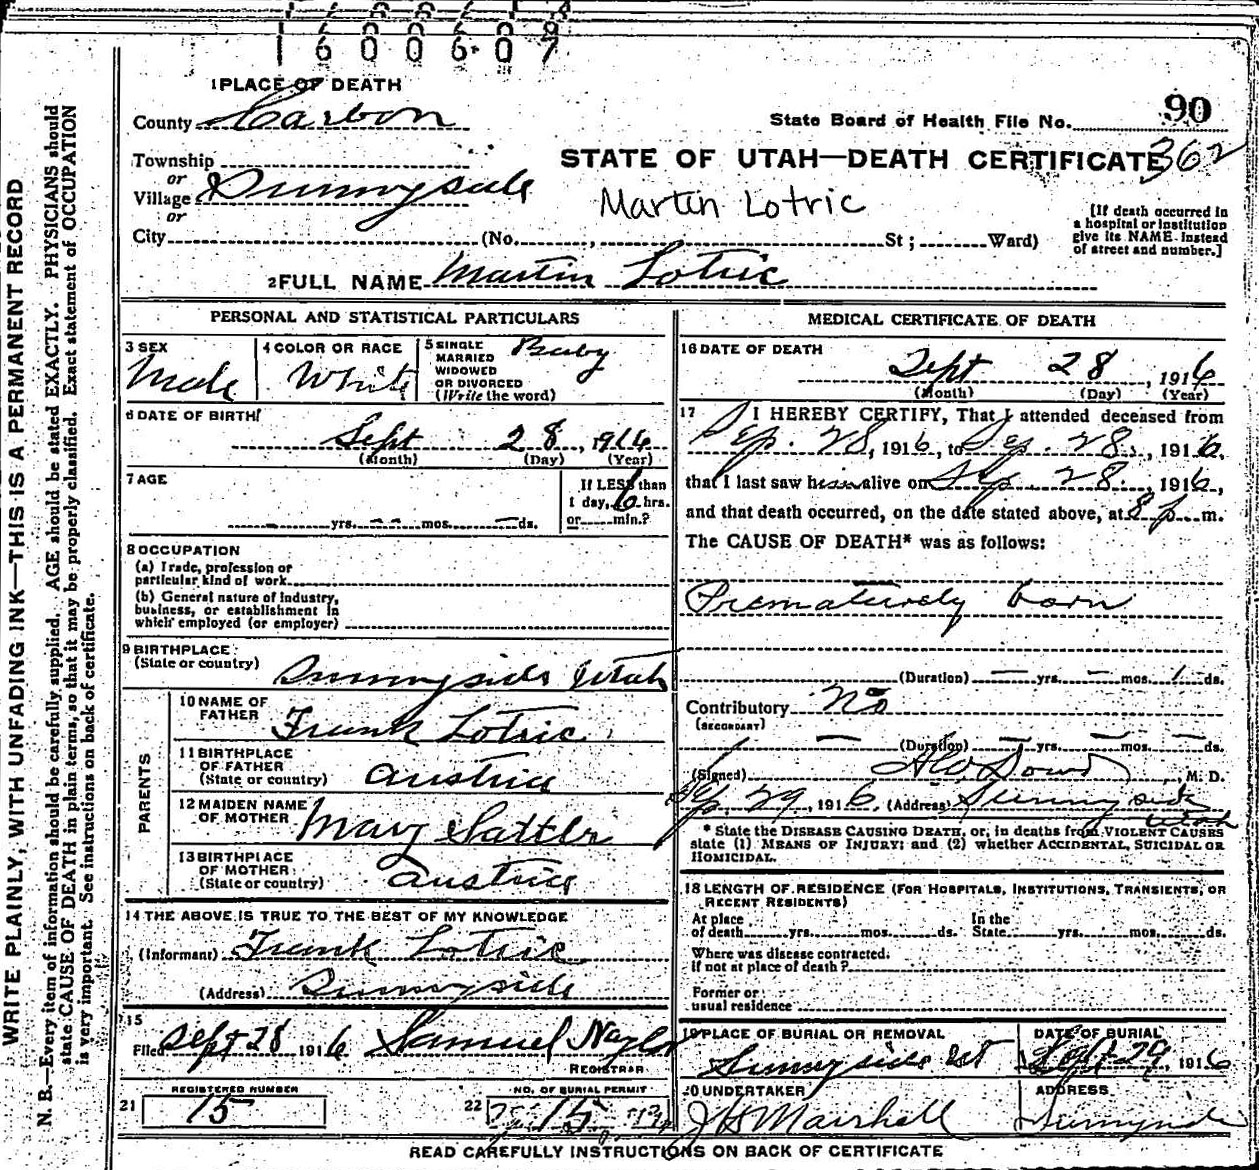 1 6 0 0 6 0 7
1 PLACE OF DEATH
County Carbon
State Board of Health File No. 90
362
Township
or
Village Sunnyside
or
STATE OF UTAH—DEATH CERTIFICATE
Martin Lotric
City (No. , St ; Ward)
[If death occurred in
a hospital or institution
give its NAME instead
of street and number.]
2 FULL NAME Martin Lotric
PERSONAL AND STATISTICAL PARTICULARS
3 SEX
Male
4 COLOR OR RACE
White
5 SINGLE
MARRIED
WIDOWED
OR DIVORCED
(Write the word)
Baby
6 DATE OF BIRTH
Sept 28, 1916
(Month) (Day) (Year)
7 AGE
If LESS than
1 day, 6 hrs.
or min.?
yrs. mos. ds.
8 OCCUPATION
(a) Trade, profession or
particular kind of work
(b) General nature of industry,
business, or establishment in
which employed (or employer)
9 BIRTHPLACE
(State or country) Sunnyside Utah
PARENTS
10 NAME OF
FATHER Frank Lotric
11 BIRTHPLACE
OF FATHER
(State or country) Austria
12 MAIDEN NAME
OF MOTHER Mary Sattler
13 BIRTHPLACE
OF MOTHER
(State or country) Austria
14 THE ABOVE IS TRUE TO THE BEST OF MY KNOWLEDGE
(Informant) Frank Lotric
(Address) Sunnyside
15
Filed Sept 28 1916 Samuel Naylor
REGISTRAR
REGISTERED NUMBER
21 15
NO. OF BURIAL PERMIT
22 15
MEDICAL CERTIFICATE OF DEATH
16 DATE OF DEATH
Sept 28, 1916
(Month) (Day) (Year)
17 I HEREBY CERTIFY, That I attended deceased from
Sep. 28, 1916, to Sep. 28, 1916,
that I last saw him alive on Sep. 28, 1916,
and that death occurred, on the date stated above, at 8 p. m.
The CAUSE OF DEATH* was as follows:
Prematurely born
(Duration) — yrs. — mos. 1 ds.
Contributory No
(SECONDARY)
— (Duration) — yrs. — mos. — ds.
(Signed) A.W. Dowd, M. D.
Sep. 29, 1916. (Address) Sunnyside
Utah
* State the DISEASE CAUSING DEATH, or, in deaths from VIOLENT CAUSES
state (1) MEANS OF INJURY; and (2) whether ACCIDENTAL, SUICIDAL OR
HOMICIDAL.
18 LENGTH OF RESIDENCE (FOR HOSPITALS, INSTITUTIONS, TRANSIENTS, OR
RECENT RESIDENTS)
At place
of death yrs. mos. ds.
In the
State yrs. mos. ds.
Where was disease contracted,
if not at place of death?
Former or
usual residence
19 PLACE OF BURIAL OR REMOVAL
Sunnyside Ut
DATE OF BURIAL
Sept 29, 1916
20 UNDERTAKER
J H Marshall
ADDRESS
Sunnyside
READ CAREFULLY INSTRUCTIONS ON BACK OF CERTIFICATE
WRITE PLAINLY, WITH UNFADING INK—THIS IS A PERMANENT RECORD
N. B.—Every item of information should be carefully supplied. AGE should be stated EXACTLY. PHYSICIANS should
state CAUSE OF DEATH in plain terms, so that it may be properly classified. Exact statement of OCCUPATION
is very important. See instructions on back of certificate.